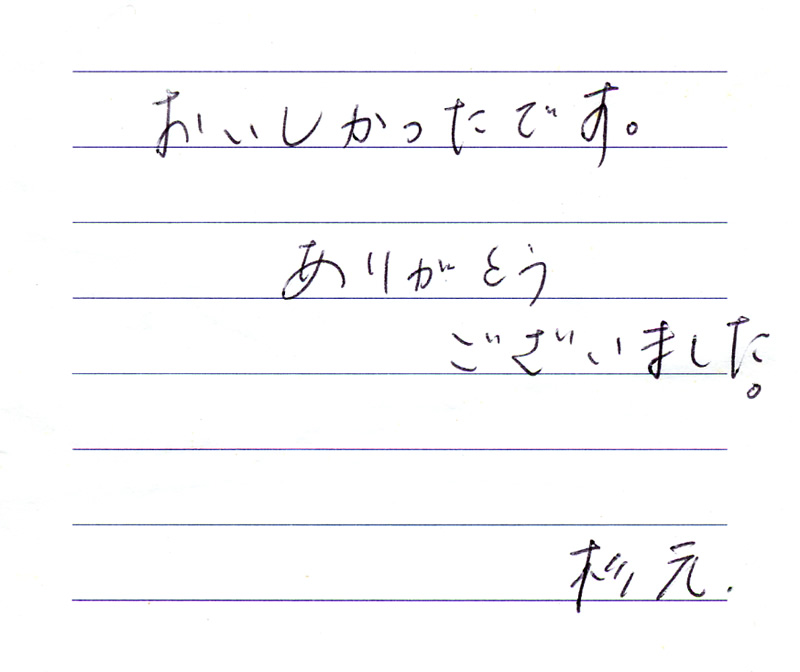 おいしかったです。
ありがとう
ございました。
杉元.